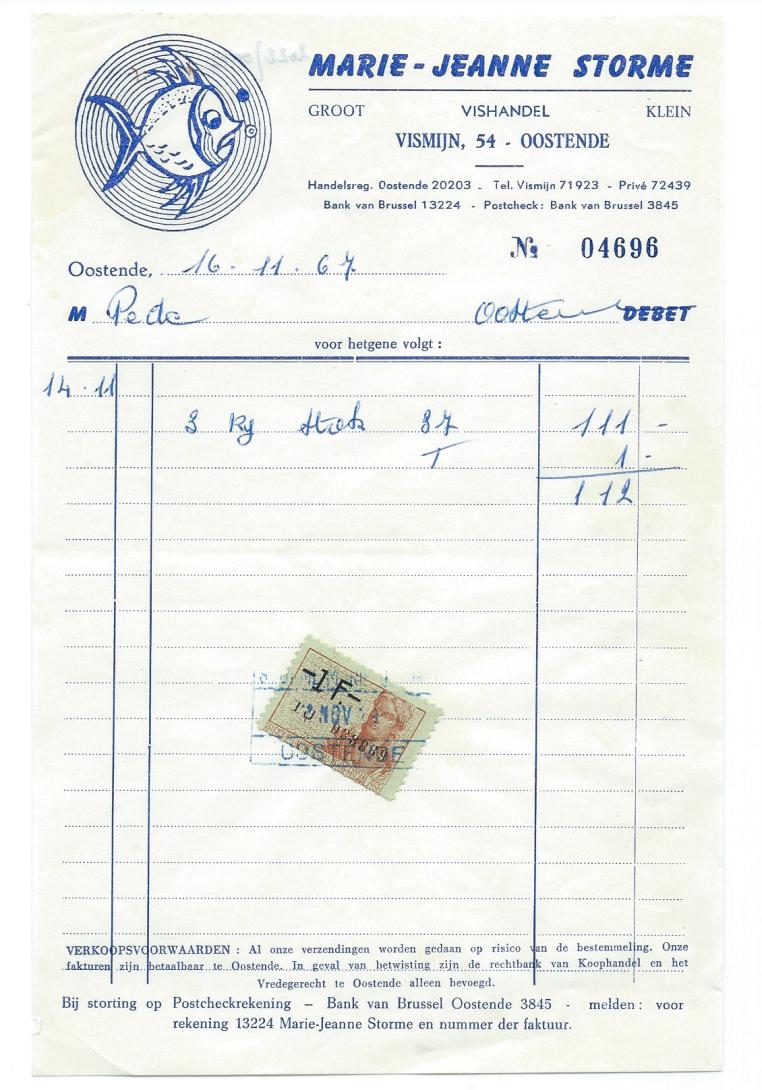 MARIE-JEANNE STORME
GROOT VISHANDEL KLEIN
VISMIJN, 54 - OOSTENDE
Handelsreg. Oostende 20203 - Tel. Vismijn 71923 - Privé 72439
Bank van Brussel 13224 - Postcheck: Bank van Brussel 3845
№ 04696
Oostende, 16-11.67
M Pede Oosten DEBET
voor hetgene volgt :
14-11
3 kg 37 111 -
T 1 -
112
-1 F-
NOV
OOSTENDE
VERKOOPSVOORWAARDEN : Al onze verzendingen worden gedaan op risico van de bestemmeling. Onze
fakturen zijn betaalbaar te Oostende. In geval van betwisting zijn de rechtbank van Koophandel en het
Vredegerecht te Oostende alleen bevoegd.
Bij storting op Postcheckrekening – Bank van Brussel Oostende 3845 - melden : voor
rekening 13224 Marie-Jeanne Storme en nummer der faktuur.